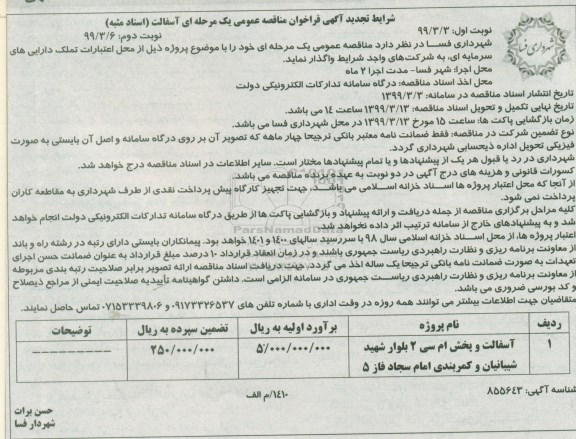 شرایط تجدید آگهی فراخوان مناقصه عمومی یک مرحله ای آسفالت (اسناد مثبه)
نوبت اول: ۹۹/۳/۳
نوبت دوم: ۹۹/۳/۶
شهرداری فسا
شهرداری فسا در نظر دارد مناقصه عمومی یک مرحله ای خود را با موضوع پروژه ذیل از محل اعتبارات تملک دارایی های
سرمایه ای، به شرکت‌های واجد شرایط واگذار نماید.
محل اجرا: شهر فسا- مدت اجرا ۲ ماه
محل اخذ اسناد مناقصه: درگاه سامانه تدارکات الکترونیکی دولت
تاریخ انتشار اسناد مناقصه در سامانه: ۱۳۹۹/۳/۳
تاریخ نهایی تکمیل و تحویل اسناد مناقصه: ۱۳۹۹/۳/۱۳ ساعت ۱٤ می باشد.
زمان بازگشایی پاکت ها: ساعت ۱۵ مورخ ۱۳۹۹/۳/۱۳ در محل شهرداری فسا می باشد.
نوع تضمین شرکت در مناقصه: فقط ضمانت نامه معتبر بانکی ترجیحا چهار ماهه که تصویر آن بر روی درگاه سامانه و اصل آن بایستی به صورت
فیزیکی تحویل اداره ذیحسابی شهرداری گردد.
شهرداری در رد یا قبول هر یک از پیشنهادها و یا تمام پیشنهادها مختار است. سایر اطلاعات در اسناد مناقصه درج خواهد شد.
کسورات قانونی و هزینه های درج آگهی در دو نوبت به عهده برنده مناقصه می باشد.
از آنجا که محل اعتبار پروژه ها اسـناد خزانه اسـلامی می باشـد، جهت تجهیز کارگاه پیش پرداخت نقدی از طرف شهرداری به مقاطعه کاران
پرداخت نمی شود.
کلیه مراحل برگزاری مناقصه از جمله دریافت و ارائه پیشنهاد و بازگشایی پاکت ها از طریق درگاه سامانه تدارکات الکترونیکی دولت انجام خواهد
شد و به پیشنهادهای خارج از سامانه ترتیب اثر داده نخواهد شد.
اعتبار پروژه ها، از محل اسـناد خزانه اسلامی سال ۹۸ با سررسید سالهای ۱۴۰۰ و ۱۴۰۱ خواهد بود. پیمانکاران بایستی دارای رتبه در رشته راه و باند
از معاونت برنامه ریزی و نظارت راهبردی ریاست جمهوری باشند و در زمان انعقاد قرارداد ۱۰ درصد مبلغ قرارداد به عنوان ضمانت حسن اجرای
تعهدات به صورت ضمانت نامه بانکی ترجیحا یک ساله اخذ می گردد. جهت دریافت اسناد مناقصه ارائه تصویر برابر صلاحیت رتبه بندی مربوطه
از معاونت برنامه ریزی و نظارت راهبردی ریاسـت جمهوری در سامانه الزامی است. داشتن گواهینامه تأییدیه صلاحیت ایمنی از مراجع ذیصلاح
و کد بورسی ضروری می باشد.
متقاضیان جهت اطلاعات بیشتر می توانند همه روزه در وقت اداری با شماره تلفن های ۰۹۱۷۳۳۲۶۵۳۷ و ۰۷۱۵۳۳۳۹۸۰۶ تماس حاصل نمایند.
ردیف نام پروژه برآورد اولیه به ریال تضمین سپرده به ریال توضیحات
۱ آسفالت و پخش ام سی ۲ بلوار شهید شیبانیان و کمربندی امام سجاد فاز ۵ ۵/۰۰۰/۰۰۰/۰۰۰ ۲۵۰/۰۰۰/۰۰۰ ----------
شناسه آگهی: ۸۵۵۶۴۳
۱٤۱۰/م الف
حسن برات
شهردار فسا
ParsNamadData